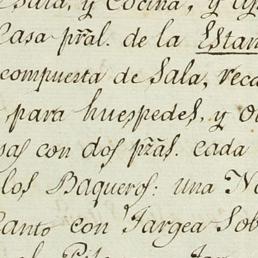 y Cocina, y
Casa pr̃al. de la Estan
compuesta de Sala, reca
para huespedes, y O
sas con dos pr̃as. cada
los Baqueros: una No
Canto con Targea Sob